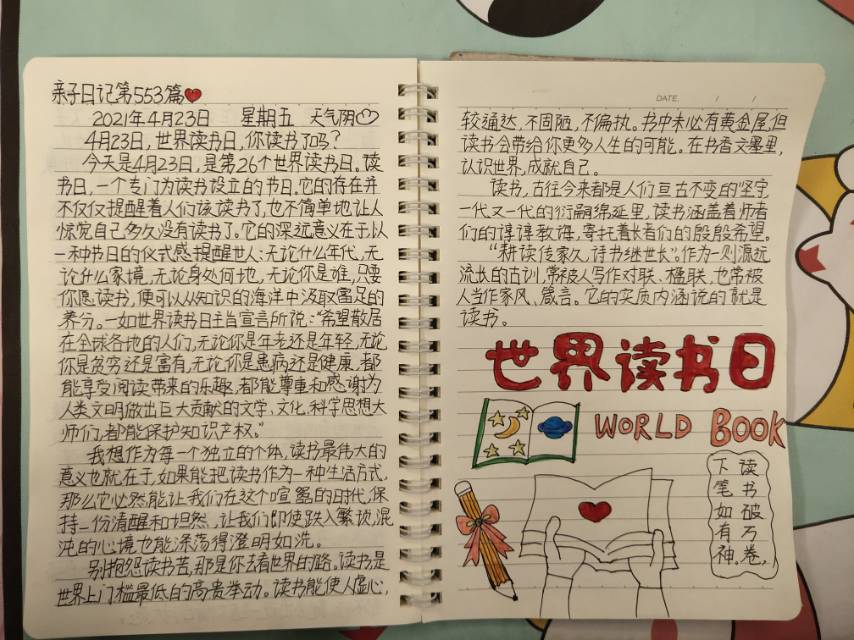 亲子日记第553篇
2021年4月23日 星期五 天气阴
4月23日,世界读书日,你读书了吗?
今天是4月23日,是第26个世界读书日。读
书日,一个专门为读书设立的节日,它的存在并
不仅仅提醒着人们该读书了,也不简单地让人
惊觉自己多久没有读书了。它的深远意义在于,以
一种节日的仪式感提醒世人:无论什么年代,无
论什么家境,无论身处何地,无论你是谁,只要
你愿读书,便可以从知识的海洋中汲取富足的
养分。一如世界读书日主旨宣言所说:“希望散居
在全球各地的人们,无论你是年老还是年轻,无论
你是贫穷还是富有,无论你是患病还是健康,都
能享受阅读带来的乐趣,都能尊重和感谢为
人类文明做出巨大贡献的文学、文化、科学思想大
师们,都能保护知识产权。”
我想作为每一个独立的个体,读书最伟大的
意义也就在于,如果能把读书作为一种生活方式,
那么它必然能让我们在这个喧嚣的时代,保
持一份清醒和坦然,让我们即使跌入繁琐,混
沌的心境也能涤荡得澄明如洗。
别抱怨读书苦,那是你去看世界的路。读书是
世界上门槛最低的高贵举动。读书能使人虚心,
DATE. / /
较通达,不固陋,不偏执。书中未必有黄金屋,但
读书会带给你更多人生的可能。在书香文墨里,
认识世界,成就自己。
读书,古往今来都是人们亘古不变的坚守
一代又一代的衍嗣绵延里,读书涵盖着师者
们的谆谆教诲,寄托着长者们的殷殷希望。
“耕读传家久,诗书继世长”。作为一则源远
流长的古训,常被人写作对联、楹联,也常被
人当作家风、箴言。它的实质内涵说的就是
读书。
世界读书日
WORLD BOOK
读书破万卷,
下笔如有神。